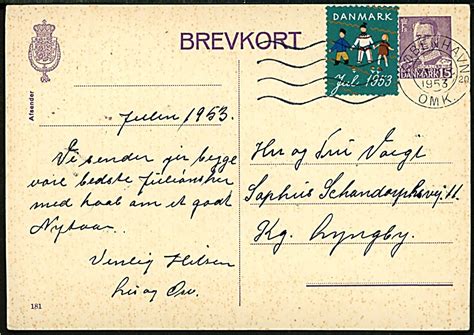 BREVKORT
DANMARK
Jul 1953
KØBENHAVN
1953
OMK.
DANMARK 15
Afsender
Julen 1953.
Vi sender jer begge
vore bedste Juleønsker
med haab om et godt
Nytaar.
Venlig Hilsen
Hr og Fru Voigt
Sophus Schandorphsvej 11
Kg. Lyngby.
181